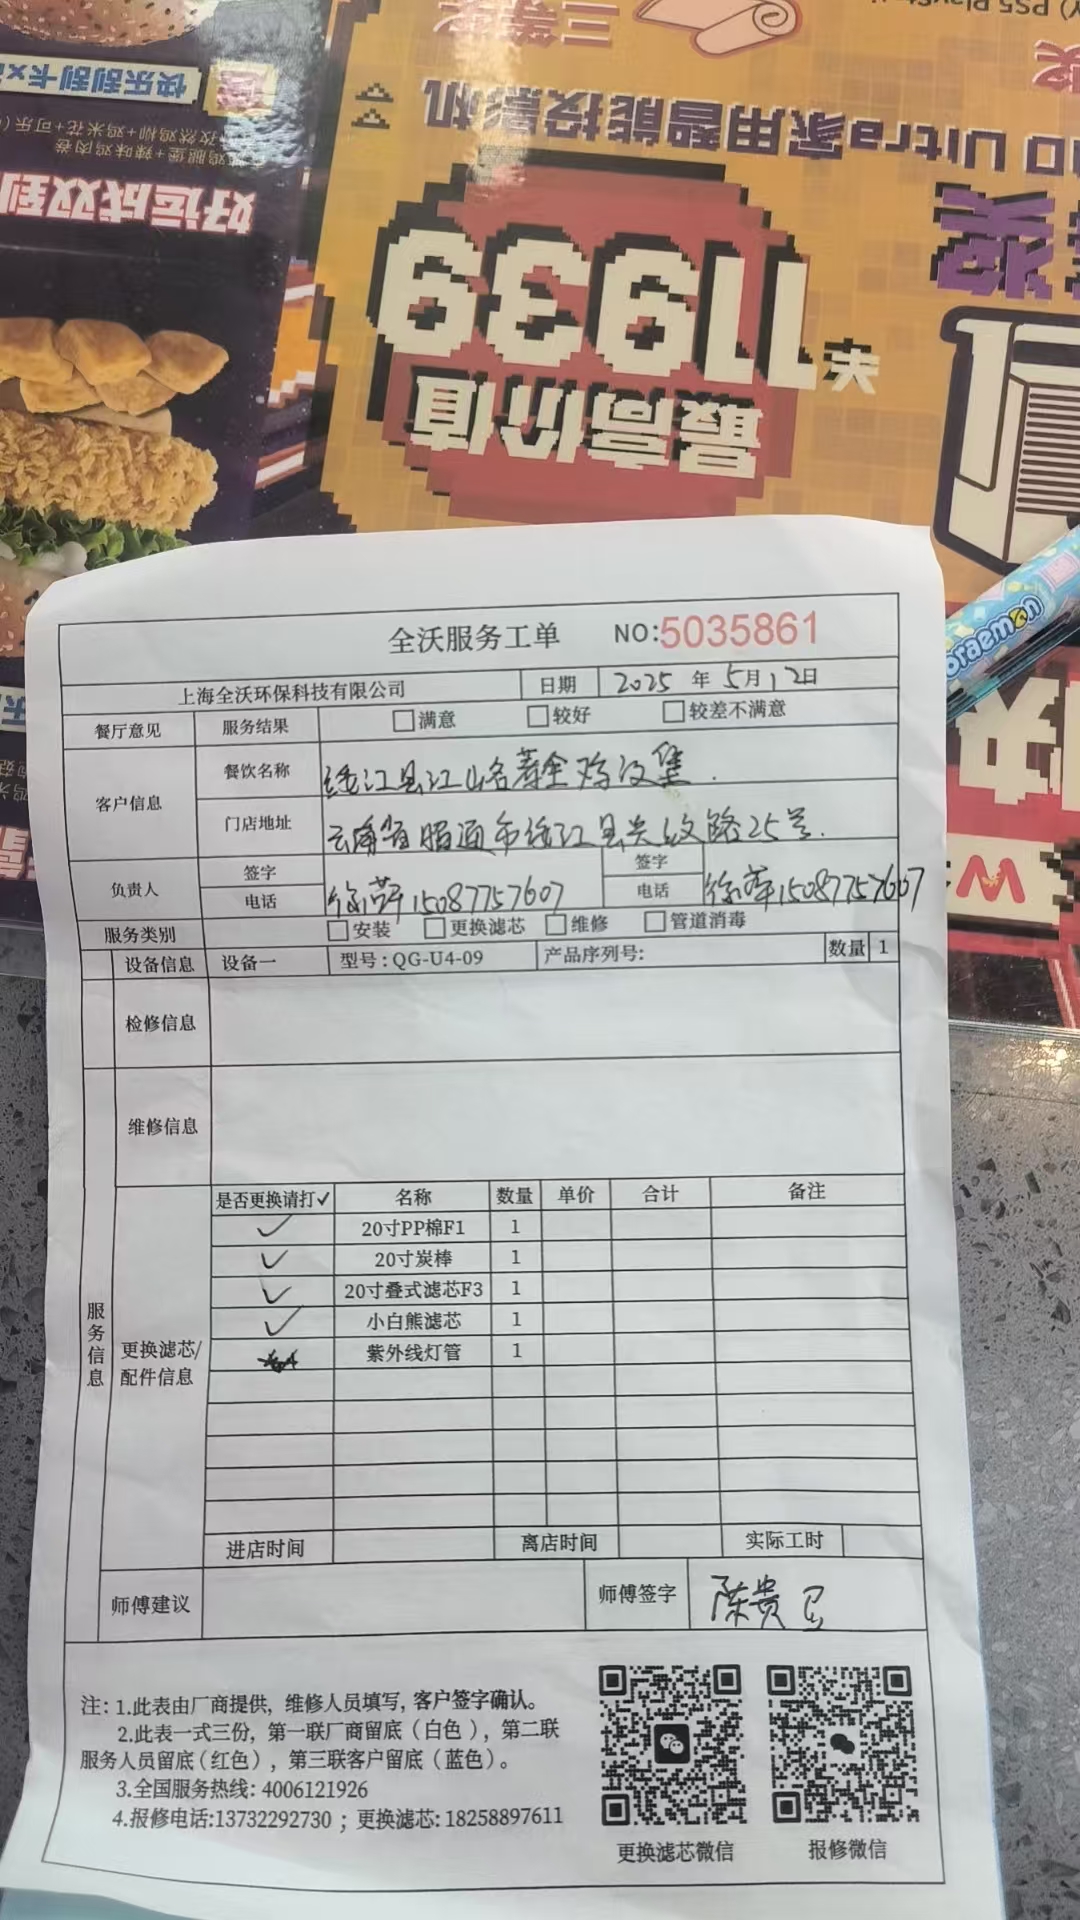 PS5
三等奖
奖
快乐刮刮卡x
鸡腿堡+辣味鸡肉卷
孜然鸡柳+鸡米花+可乐
好运成双到
Ultra家用智能投影机
最高价值
11939
元
Doraemon
全沃服务工单 NO:5035861
上海全沃环保科技有限公司 日期 2025 年 5月12日
餐厅意见 服务结果 □满意 □较好 □较差不满意
客户信息 餐饮名称 绥江县江山名荟全鸡汉堡.
门店地址 云南省昭通市绥江县兴文路25号.
负责人 签字 电话 徐萍 15087757607 签字 电话 徐萍 15087757607
服务类别 □安装 □更换滤芯 □维修 □管道消毒
设备信息 设备一 型号:QG-U4-09 产品序列号: 数量 1
检修信息
维修信息
服务信息
更换滤芯/配件信息
是否更换请打✓ 名称 数量 单价 合计 备注
✓ 20寸PP棉F1 1
✓ 20寸炭棒 1
✓ 20寸叠式滤芯F3 1
✓ 小白熊滤芯 1
紫外线灯管 1
进店时间 离店时间 实际工时
师傅建议 师傅签字 陈贵
注: 1.此表由厂商提供, 维修人员填写, 客户签字确认。
2.此表一式三份, 第一联厂商留底(白色), 第二联
服务人员留底(红色), 第三联客户留底(蓝色)。
3.全国服务热线: 4006121926
4.报修电话:13732292730 ; 更换滤芯: 18258897611
更换滤芯微信 报修微信